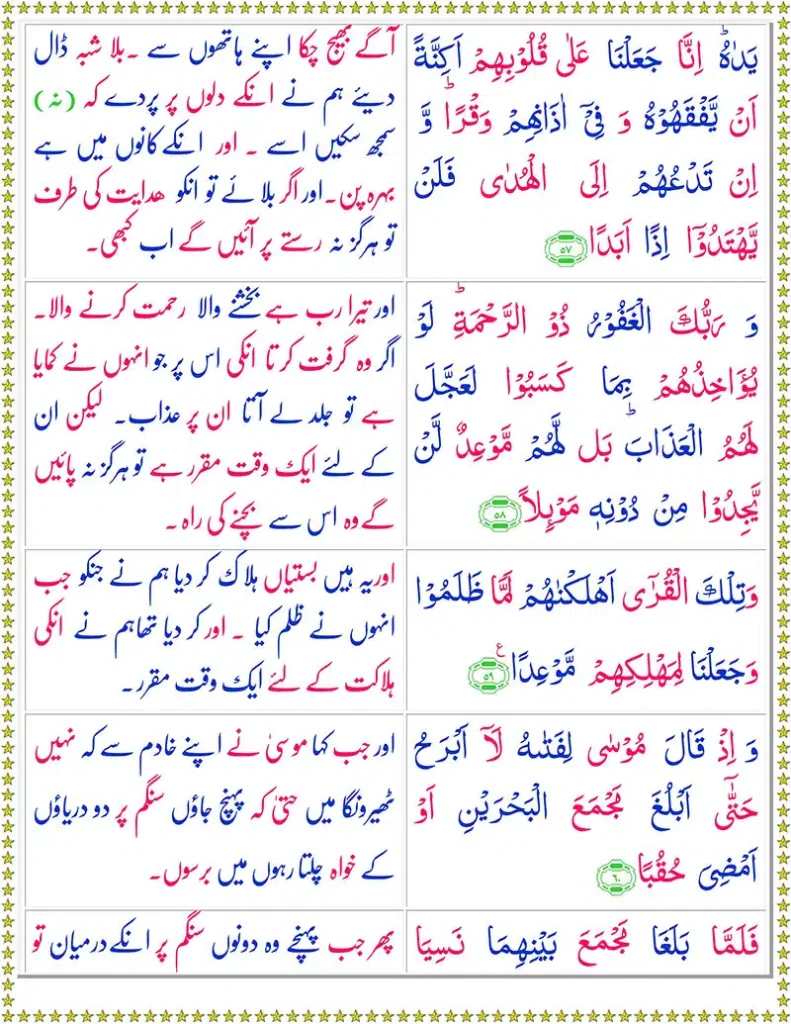 يَدٰهُ ؕ اِنَّا جَعَلْنَا عَلٰى قُلُوْبِهِمْ اَكِنَّةً
اَنْ يَّفْقَهُوْهُ وَ فِىْۤ اٰذَانِهِمْ وَقْرًا ؕ وَّ
اِنْ تَدْعُهُمْ اِلَى الْهُدٰى فَلَنْ
يَّهْتَدُوْۤا اِذًا اَبَدًا ﴿۵۷﴾
آگے بھیج چکا اپنے ہاتھوں سے ۔ بلا شبہ ڈال
دیئے ہم نے انکے دلوں پر پردے کہ (نہ)
سمجھ سکیں اسے ۔ اور انکے کانوں میں ہے
بہرہ پن۔ اور اگر بلائے تو انکو ھدایت کی طرف
تو ہرگز نہ رستے پر آئیں گے اب کبھی۔
وَ رَبُّكَ الْغَفُوْرُ ذُو الرَّحْمَةِ ؕ لَوْ
يُؤَاخِذُهُمْ بِمَا كَسَبُوْا لَعَجَّلَ
لَهُمُ الْعَذَابَ ؕ بَل لَّهُمْ مَّوْعِدٌ لَّنْ
يَّجِدُوْا مِنْ دُوْنِهٖ مَوْئِلًا ﴿۵۸﴾
اور تیرا رب ہے بخشنے والا رحمت کرنے والا۔
اگر وہ گرفت کرتا انکی اس پر جو انہوں نے کمایا
ہے تو جلد لے آتا ان پر عذاب۔ لیکن ان
کے لئے ایک وقت مقرر ہے تو ہرگز نہ پائیں
گے وہ اس سے بچنے کی راہ ۔
وَتِلْكَ الْقُرٰٓى اَهْلَكْنٰهُمْ لَمَّا ظَلَمُوْا
وَجَعَلْنَا لِمَهْلِكِهِمْ مَّوْعِدًا ﴿۵۹﴾ ع
اور یہ ہیں بستیاں ہلاک کر دیا ہم نے جنکو جب
انہوں نے ظلم کیا ۔ اور کر دیا تھا ہم نے انکی
ہلاکت کے لئے ایک وقت مقرر۔
وَ اِذْ قَالَ مُوْسٰى لِفَتٰٮهُ لَاۤ اَبْرَحُ
حَتّٰٓى اَبْلُغَ مَجْمَعَ الْبَحْرَيْنِ اَوْ
اَمْضِىَ حُقُبًا ﴿۶۰﴾
اور جب کہا موسیٰ نے اپنے خادم سے کہ نہیں
ٹھیرونگا میں حتیٰ کہ پہنچ جاؤں سنگم پر دو دریاؤں
کے خواہ چلتا رہوں میں برسوں۔
فَلَمَّا بَلَغَا مَجْمَعَ بَيْنِهِمَا نَسِيَا
پھر جب پہنچے وہ دونوں سنگم پر انکے درمیان تو